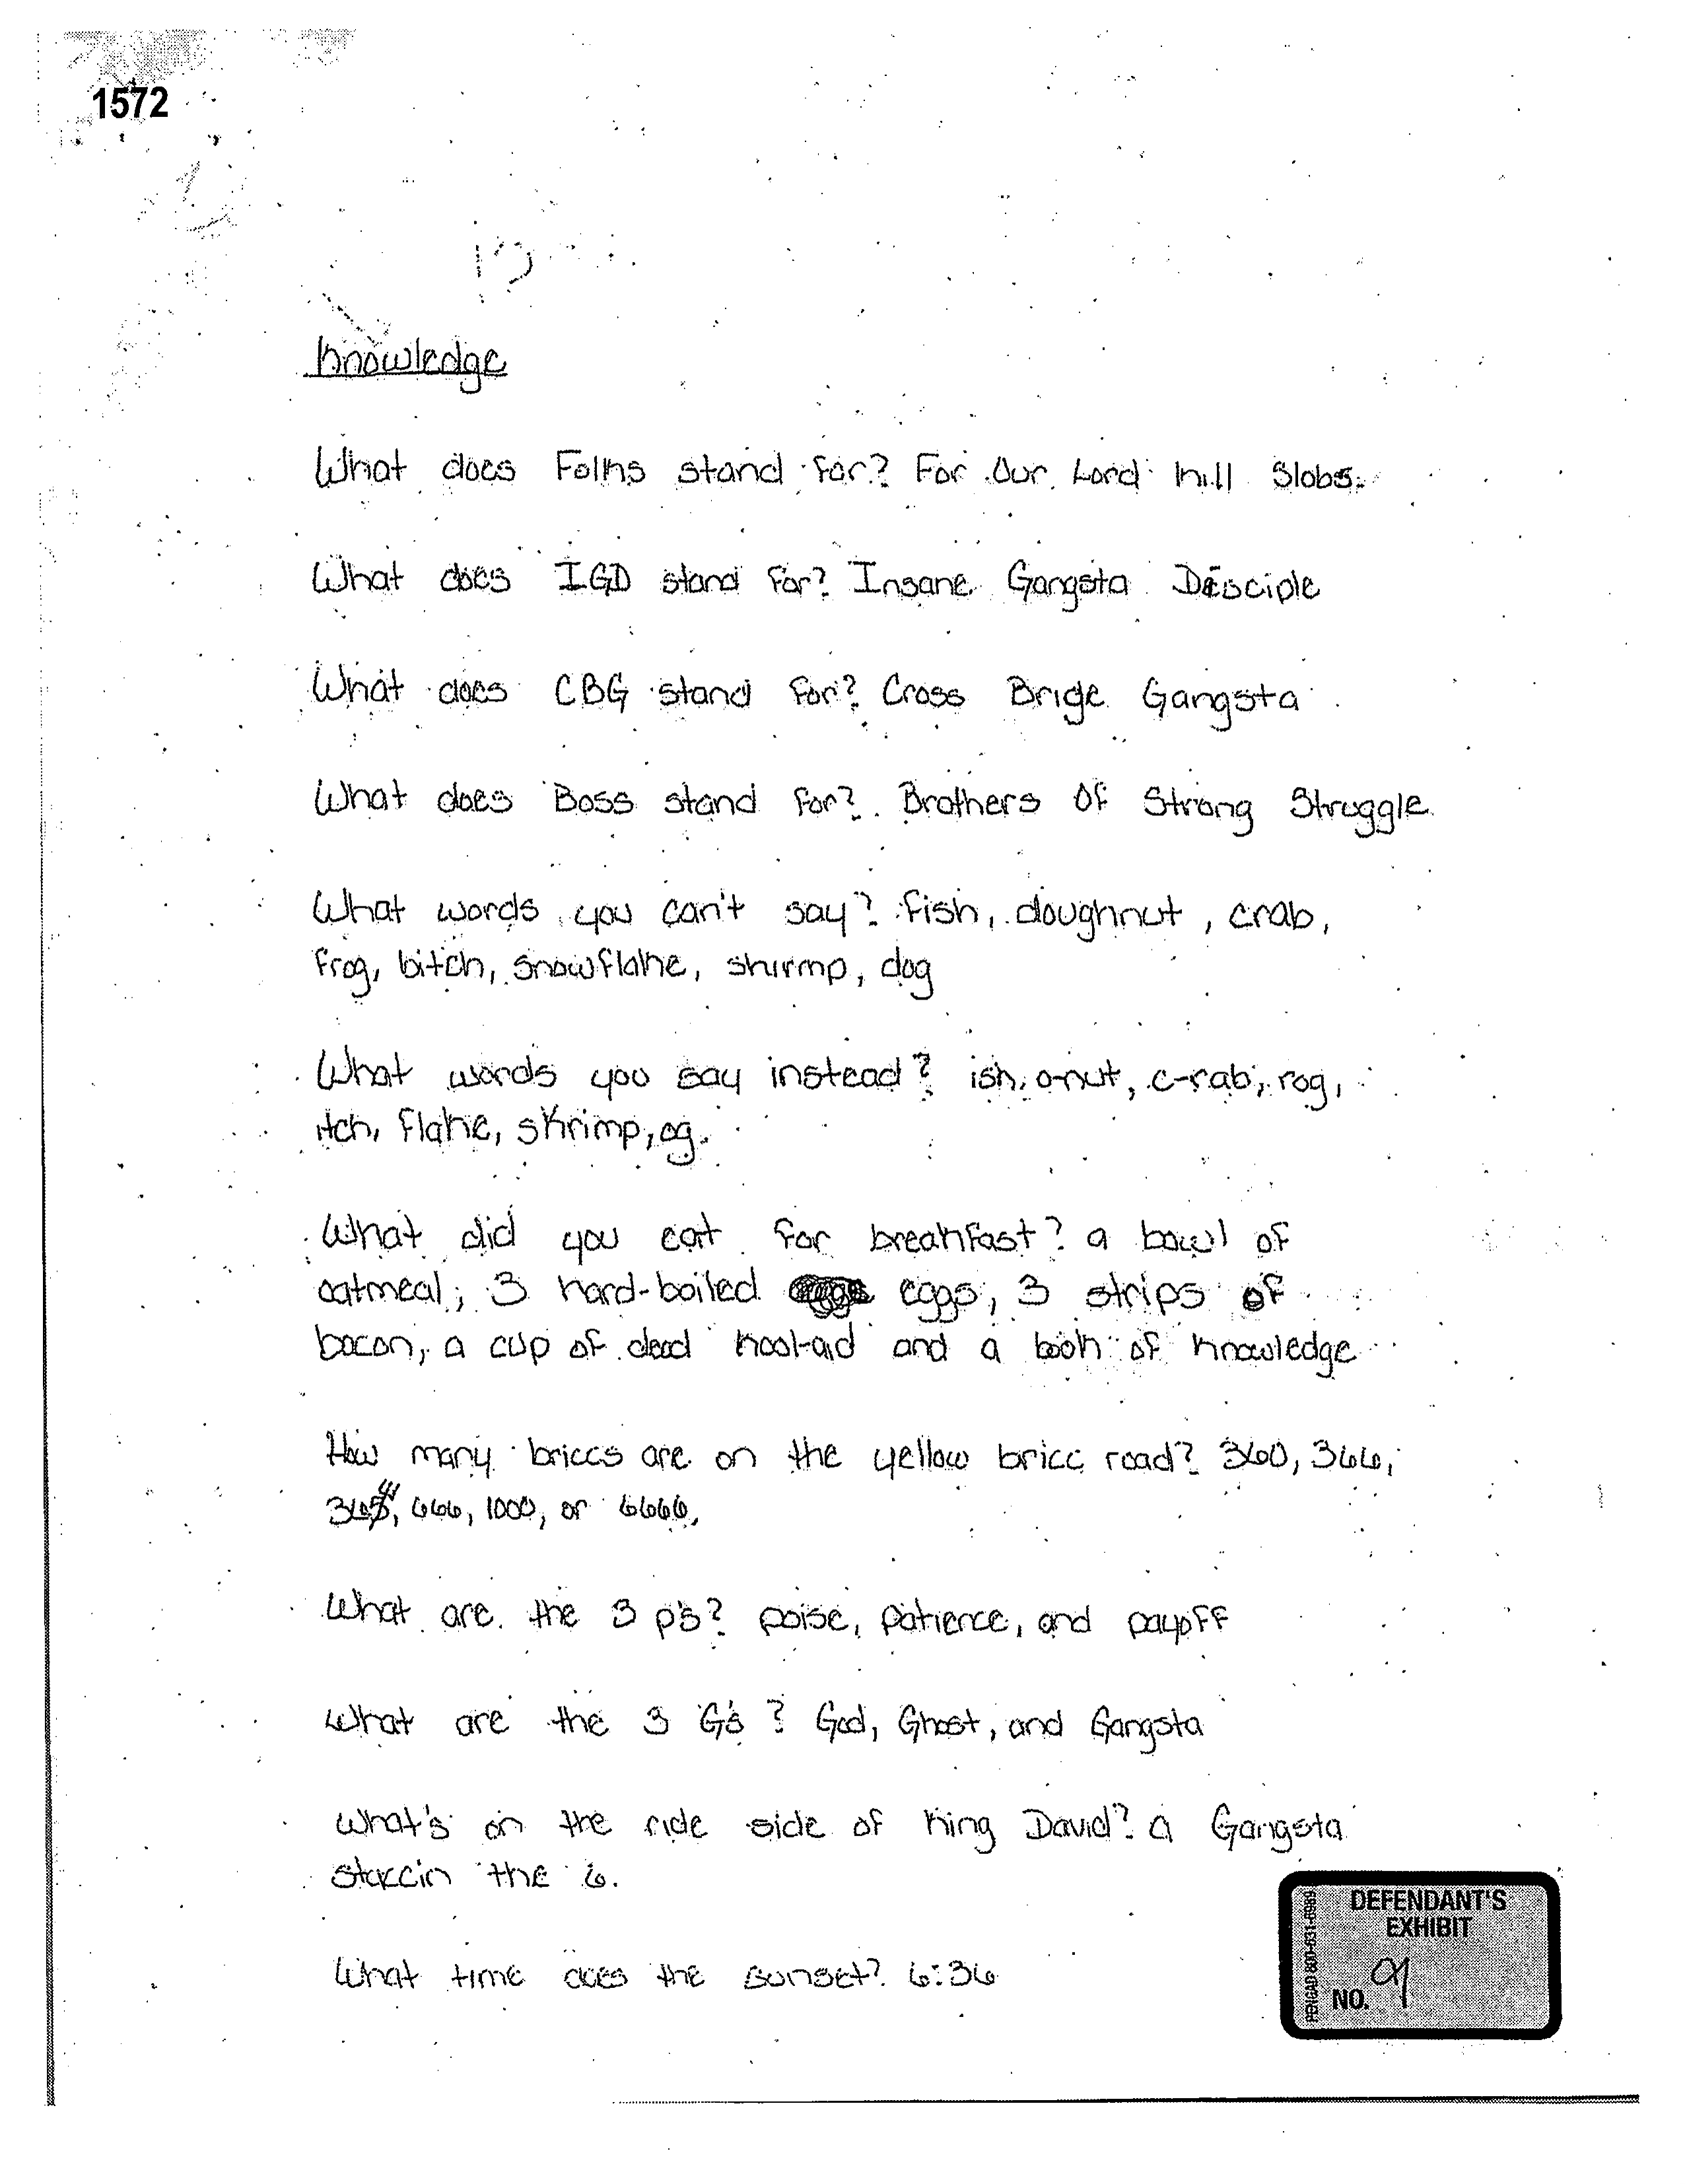 1572
Knowledge
What does Folks stand for? For Our Lord kill Slobs.
What does IGD stand for? Insane Gangsta Desciple
What does CBG stand for? Cross Brige Gangsta
What does Boss stand for? Brothers Of Strong Struggle
What words you can't say? fish, doughnut, crab,
frog, bitch, snowflake, shirmp, dog
What words you say instead? ish, o-nut, c-rab, rog,
itch, flake, skrimp, og.
What did you eat for breakfast? a bowl of
oatmeal, 3 hard-boiled eggs, 3 strips of
bacon, a cup of dead kool-aid and a book of knowledge
How many briccs are on the yellow bricc road? 360, 366,
, 666, 1000, or 6666,
What are the 3 p's? poise, patience, and payoff
What are the 3 G's? God, Ghost, and Gangsta
What's on the ride side of King David? a Gangsta
staccin the 6.
What time does the sunset? 6:36
DEFENDANT'S
EXHIBIT
NO. 9
PENGAD 800-631-6989